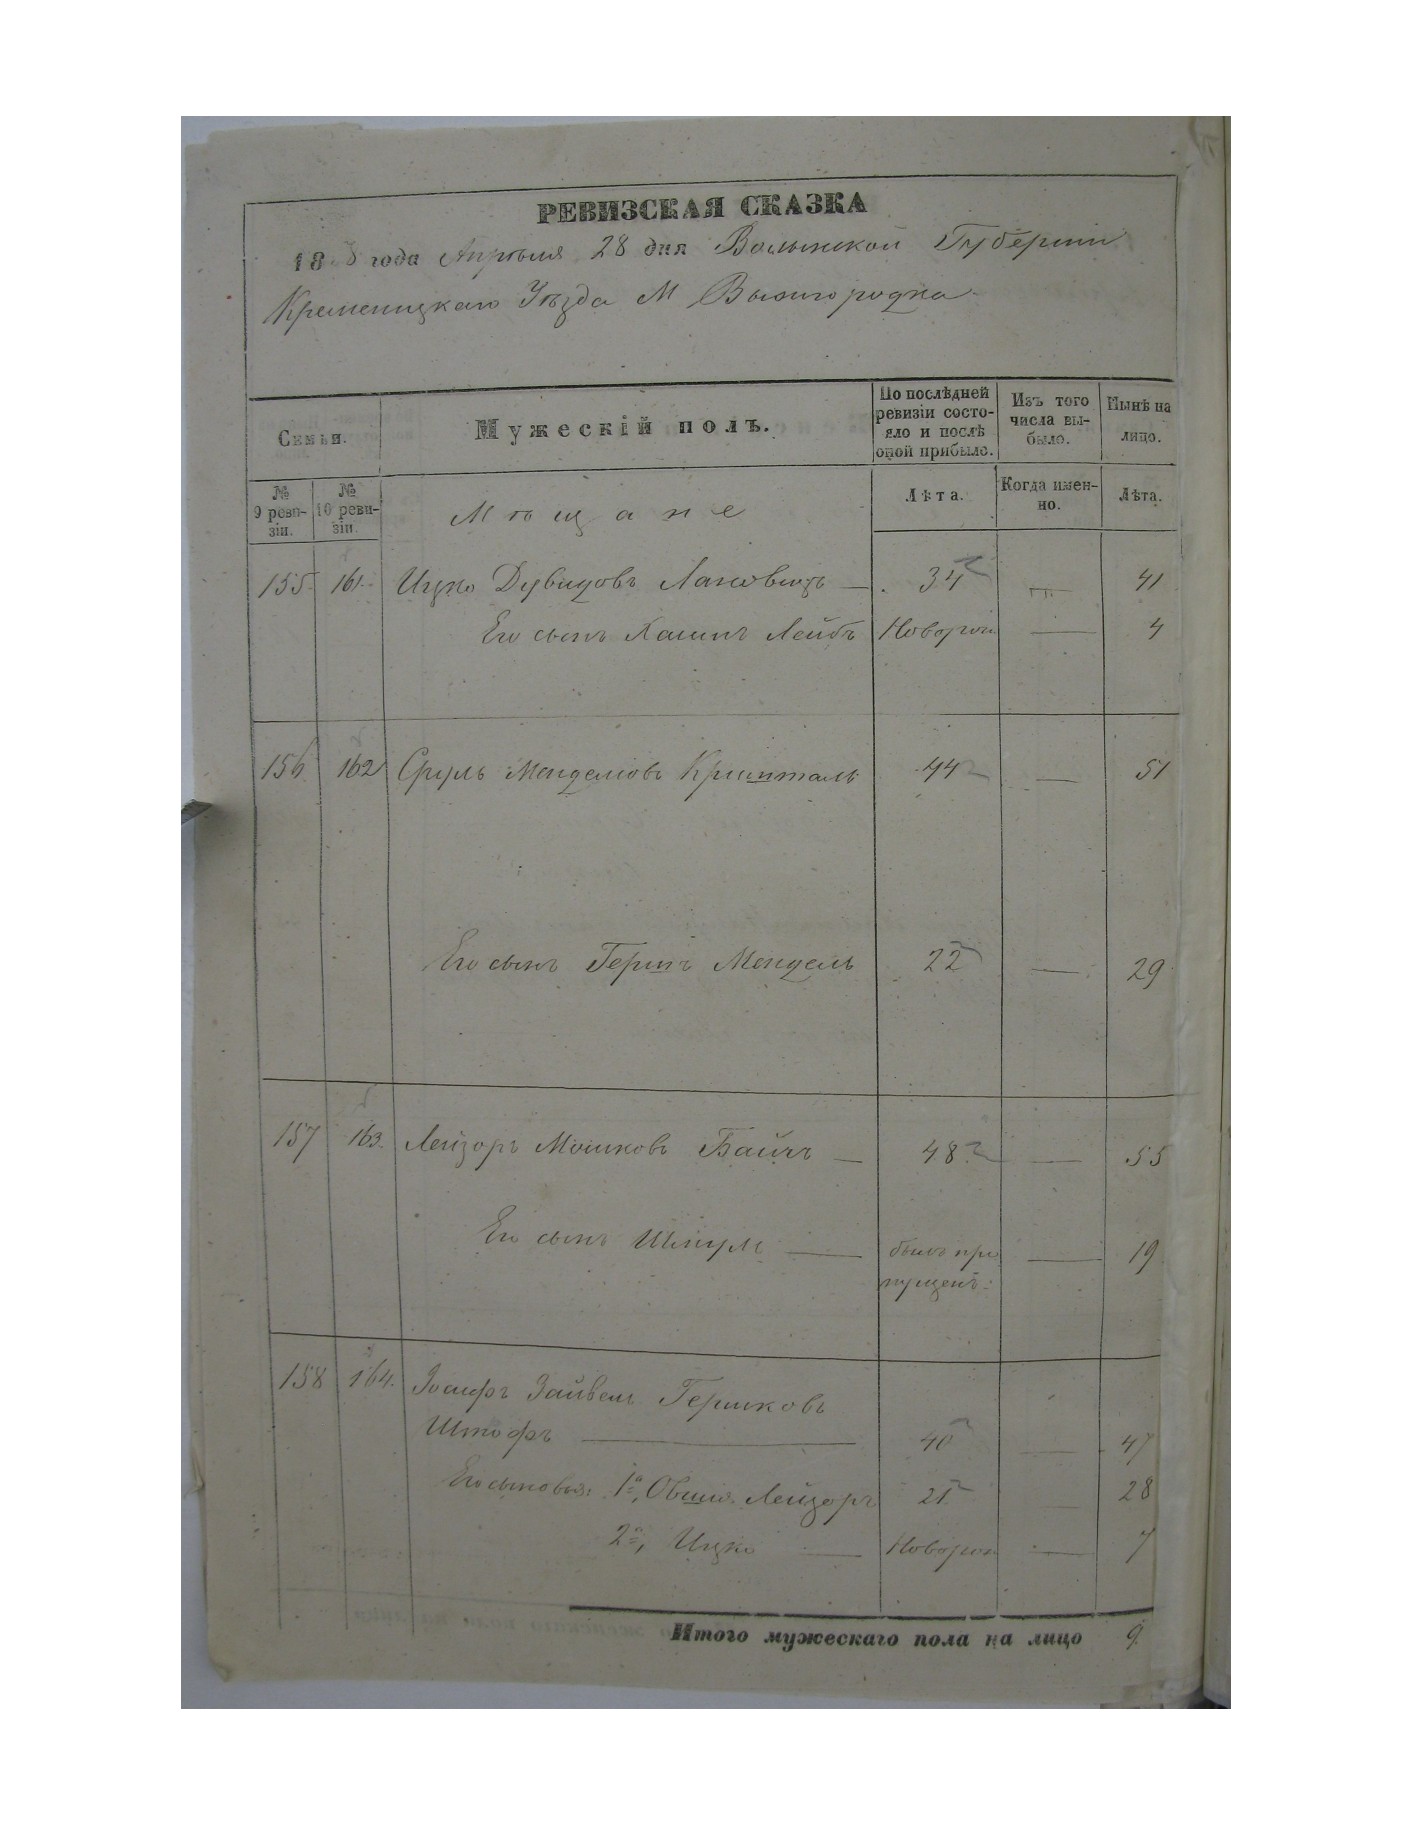 РЕВИЗСКАЯ СКАЗКА
18 8 года Апрѣля 28 дня Волынской Губерніи
Кременецкаго Уѣзда М Вышгородка.
Семьи.
Мужескій полъ.
По послѣдней ревизіи состояло и послѣ оной прибыло.
Изъ того числа выбыло.
Нынѣ на лицо.
№ 9 ревизіи.
№ 10 ревизіи.
Мѣщане
Лѣта.
Когда именно.
Лѣта.
155. 161. Ицко Дувидовъ — 34 — 41
Его сынъ Хаимъ Лейбъ Новорож — 4
156. 162 Сруль Менделіовъ Кришталь 44 — 51
Его сынъ Гершъ Мендель 22 — 29
157 163. Лейзоръ Мошковъ — 48 — 55
Его сынъ — былъ про — 19
пущенъ.
158 164. Іосифъ Зайвель Гершковъ
Штофъ — 40 — 47
Его сыновья: 1й, Овшія Лейзоръ 21 — 28
2й, Ицко — Новорож — 7
Итого мужескаго пола на лицо 9.